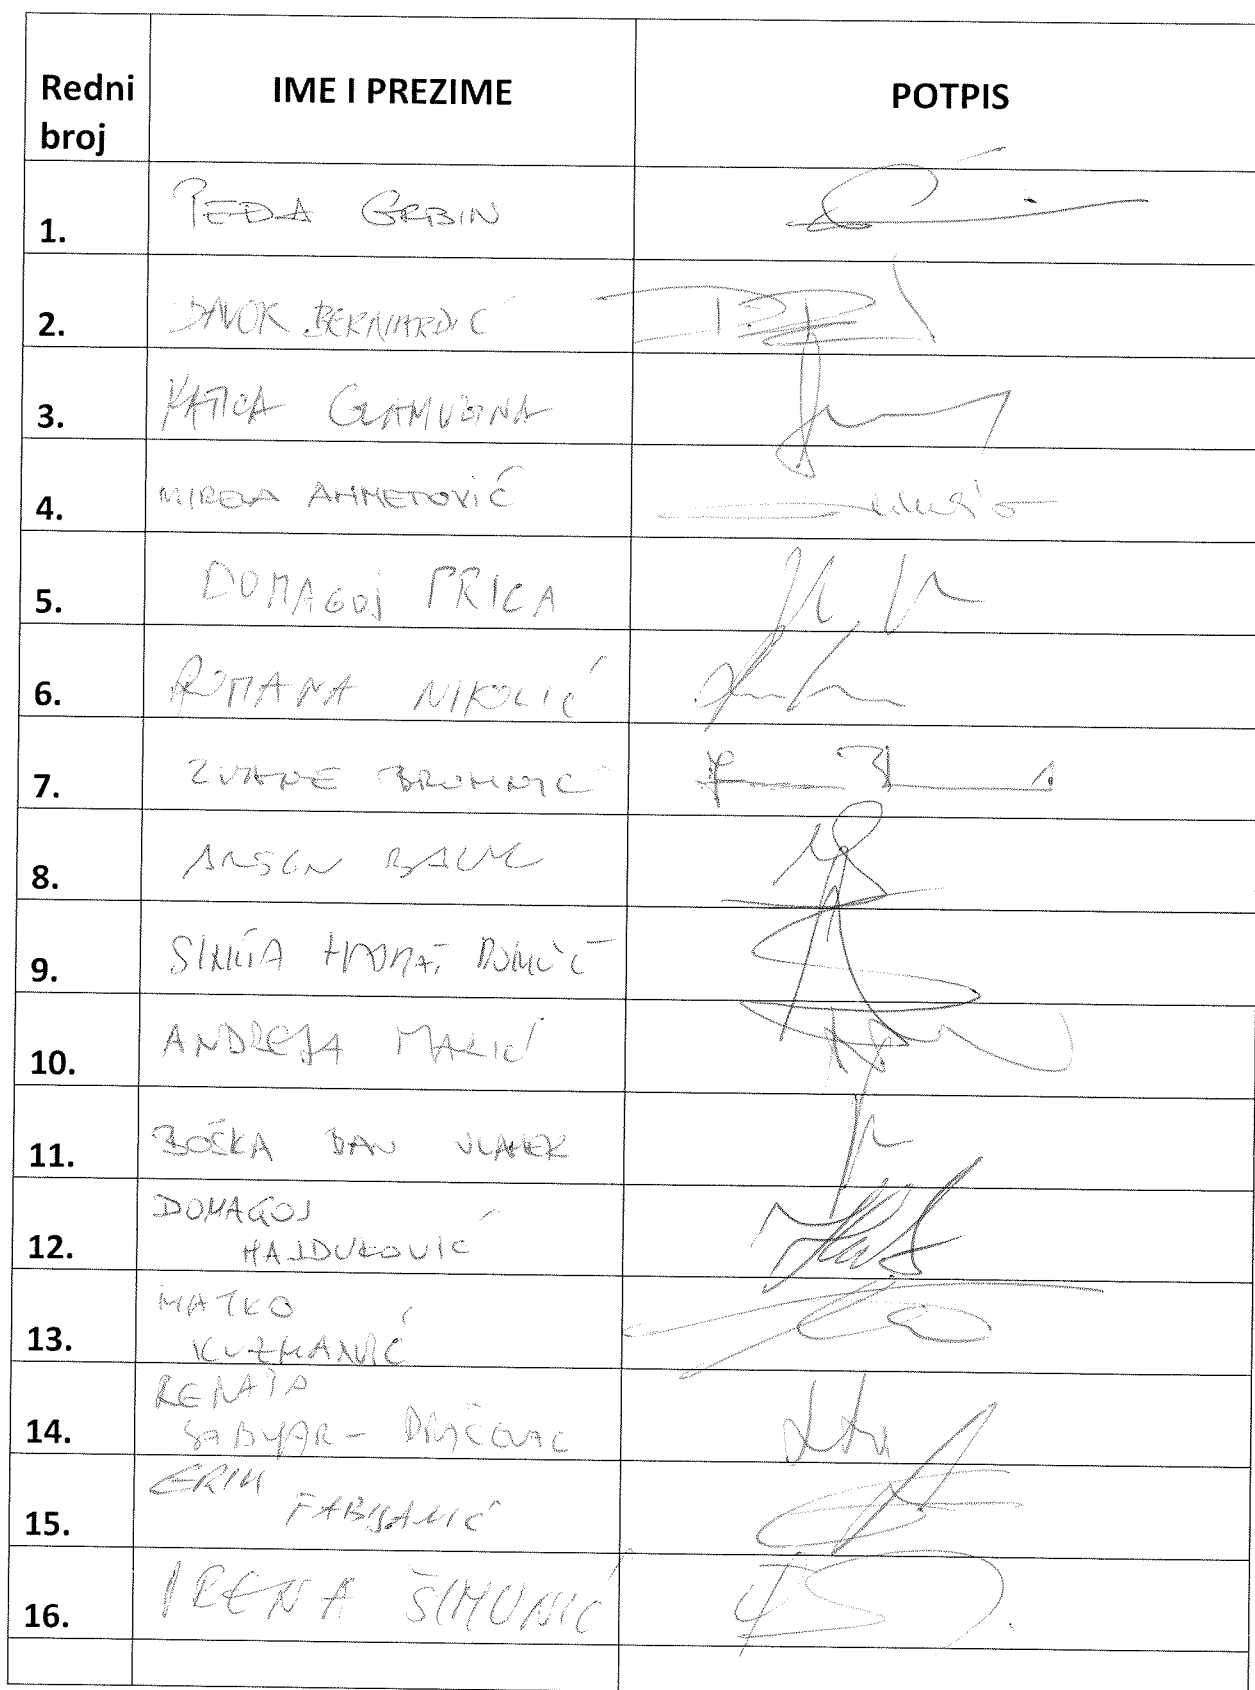 Redni broj IME I PREZIME POTPIS
1. PEĐA GRBIN
2. DAVOR BERNARDIĆ
3. KATICA GLAMUZINA
4. MIRELA AHMETOVIĆ
5. DOMAGOJ PRICA
6. ROMANA NIKOLIĆ
7. ZVANE BRUMNIĆ
8. ARSEN BAUK
9. SINIŠA HAJDAŠ DONČIĆ
10. ANDREJA MARIĆ
11. BOŠKA BAN VLAHEK
12. DOMAGOJ
HAJDUKOVIĆ
13. MATKO
KUZMANIĆ
14. RENATA
SABLJAR - DRAČEVAC
15. ERIK
FABIJANIĆ
16. IRENA ŠIMUNIĆ